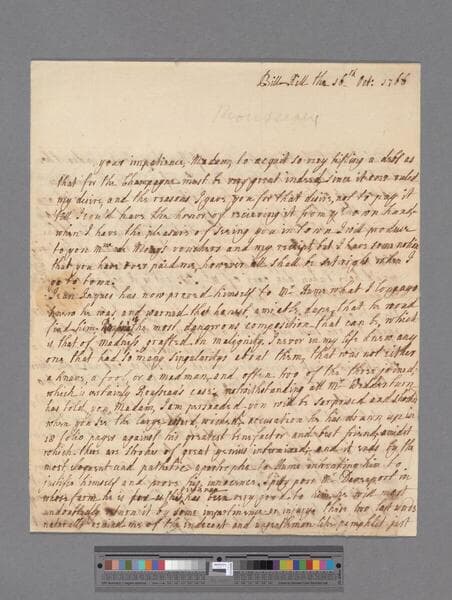 Bill Hill the 16th Oct: 1766
Rousseau
your impatience, Madam, to acquit so very trifling a debt as
that for the Champagne must be very great indeed since it over ruled
my desire, and the reasons I gave you for that desire, not to pay it
till I could have the honor of receiving it from yr own hand
when I have the pleasure of seeing you in town I will produce
to you and my receipt but I have some notion
that you have over paid me, however all shall be set right when I
go to town.
Jean Jaques has now proved himself to Mr Hume what I long ago
knew he was, and warned that honest, amiable, that he would
find him, the most dangerous composition that can be, which
is that of madness grafted on malignity. I never in my life knew any
one that had so many singularitys about them, that was not either
a knave, a fool, or a madman, and often two of the three joined,
which is certainly Rousseaus case. notwithstanding all Mr Wedderburn
has told you, Madam, I am persuaded you will be surprised and shocked
when you see the large, absurd, wicked, accusation by his own in
18 folio pages against his greatest benefactor and best friend, amidst
which there are strokes of great genius intermixed, and it ends by the
most eloquent and pathetic apostrophe to Hume intreating him to
justify himself and prove his innocence. I pity poor Mr Davenport in
whose farm he is for as this has been very good to him he will most
undoubtedly return it by some impertinence or injury. these two last words
naturally remind me of the indecent and ungentleman like pamphlet just